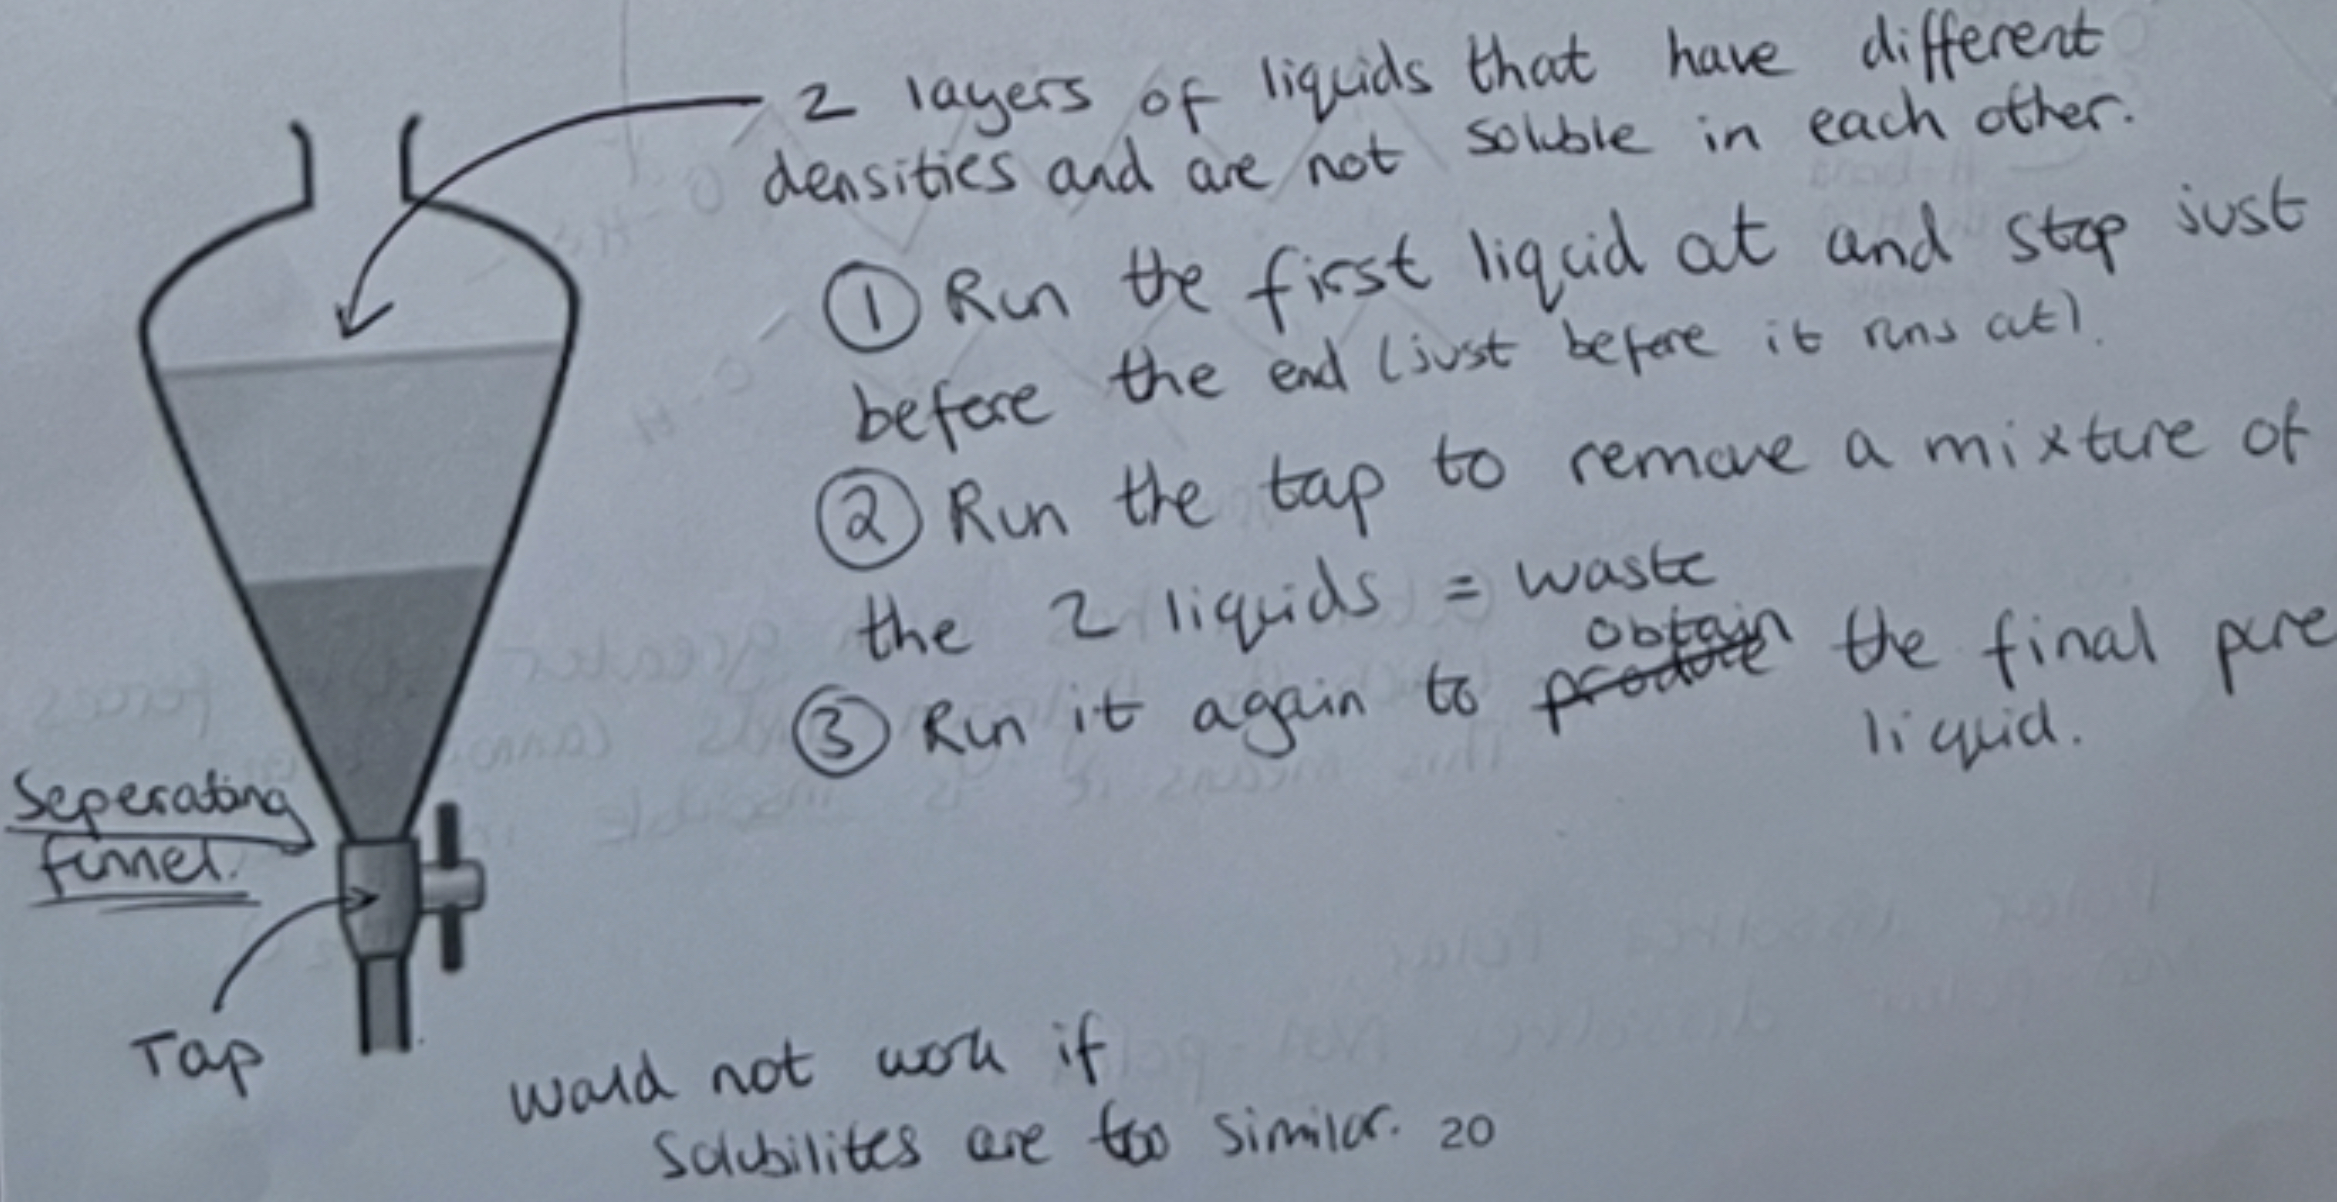 2 layers of liquids that have different
densities and are not soluble in each other.
① Run the first liquid out and stop just
before the end (just before it runs out).
② Run the tap to remove a mixture of
the 2 liquids = waste
obtain
③ Run it again to produce the final pure
liquid.
Seperating
funnel.
Tap
would not work if
Solubilites are too similar. 20